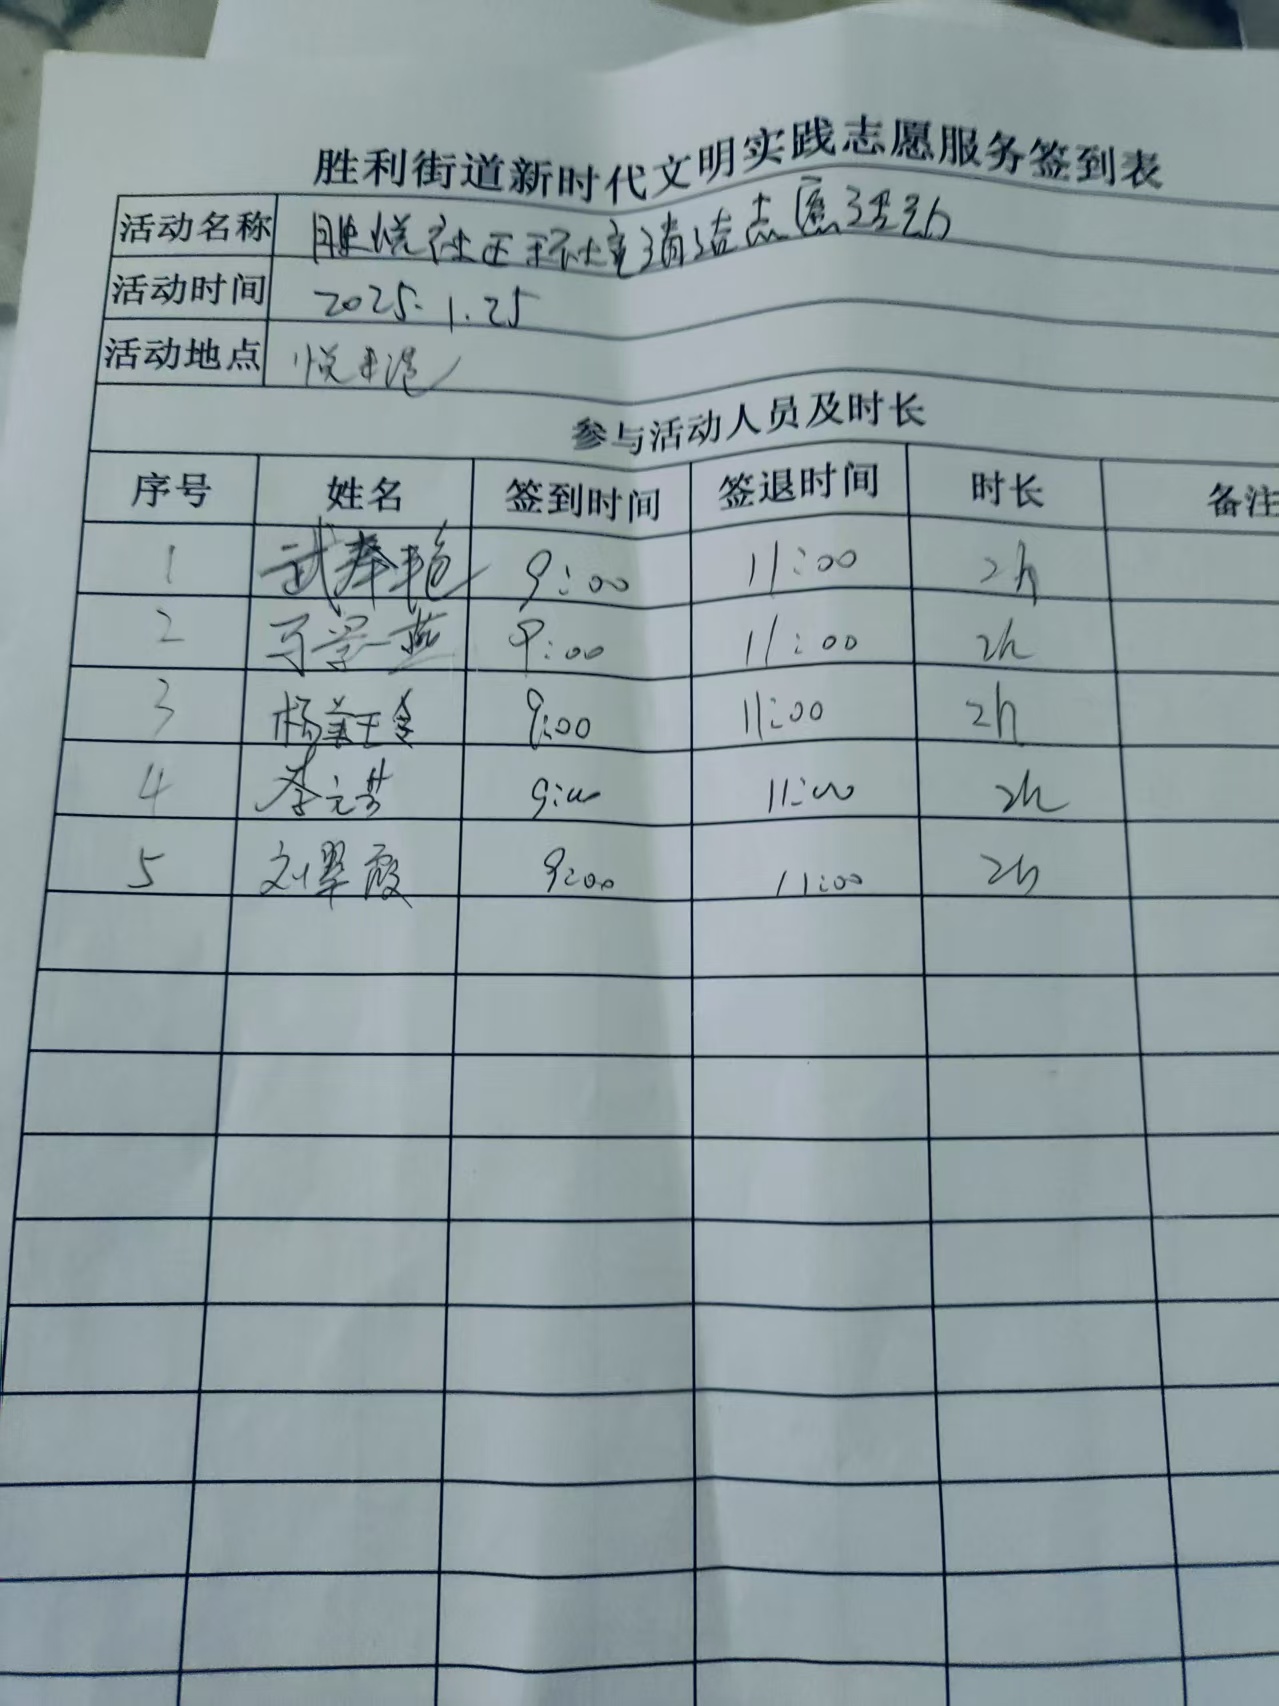 胜利街道新时代文明实践志愿服务签到表
活动名称 胜悦社区环境清洁志愿活动
活动时间 2025.1.25
活动地点 悦来港
参与活动人员及时长
序号 姓名 签到时间 签退时间 时长 备注
1 武奉艳 9:00 11:00 2h
2 马学燕 9:00 11:00 2h
3 杨 9:00 11:00 2h
4 李元芳 9:00 11:00 2h
5 刘翠霞 9:00 11:00 2h